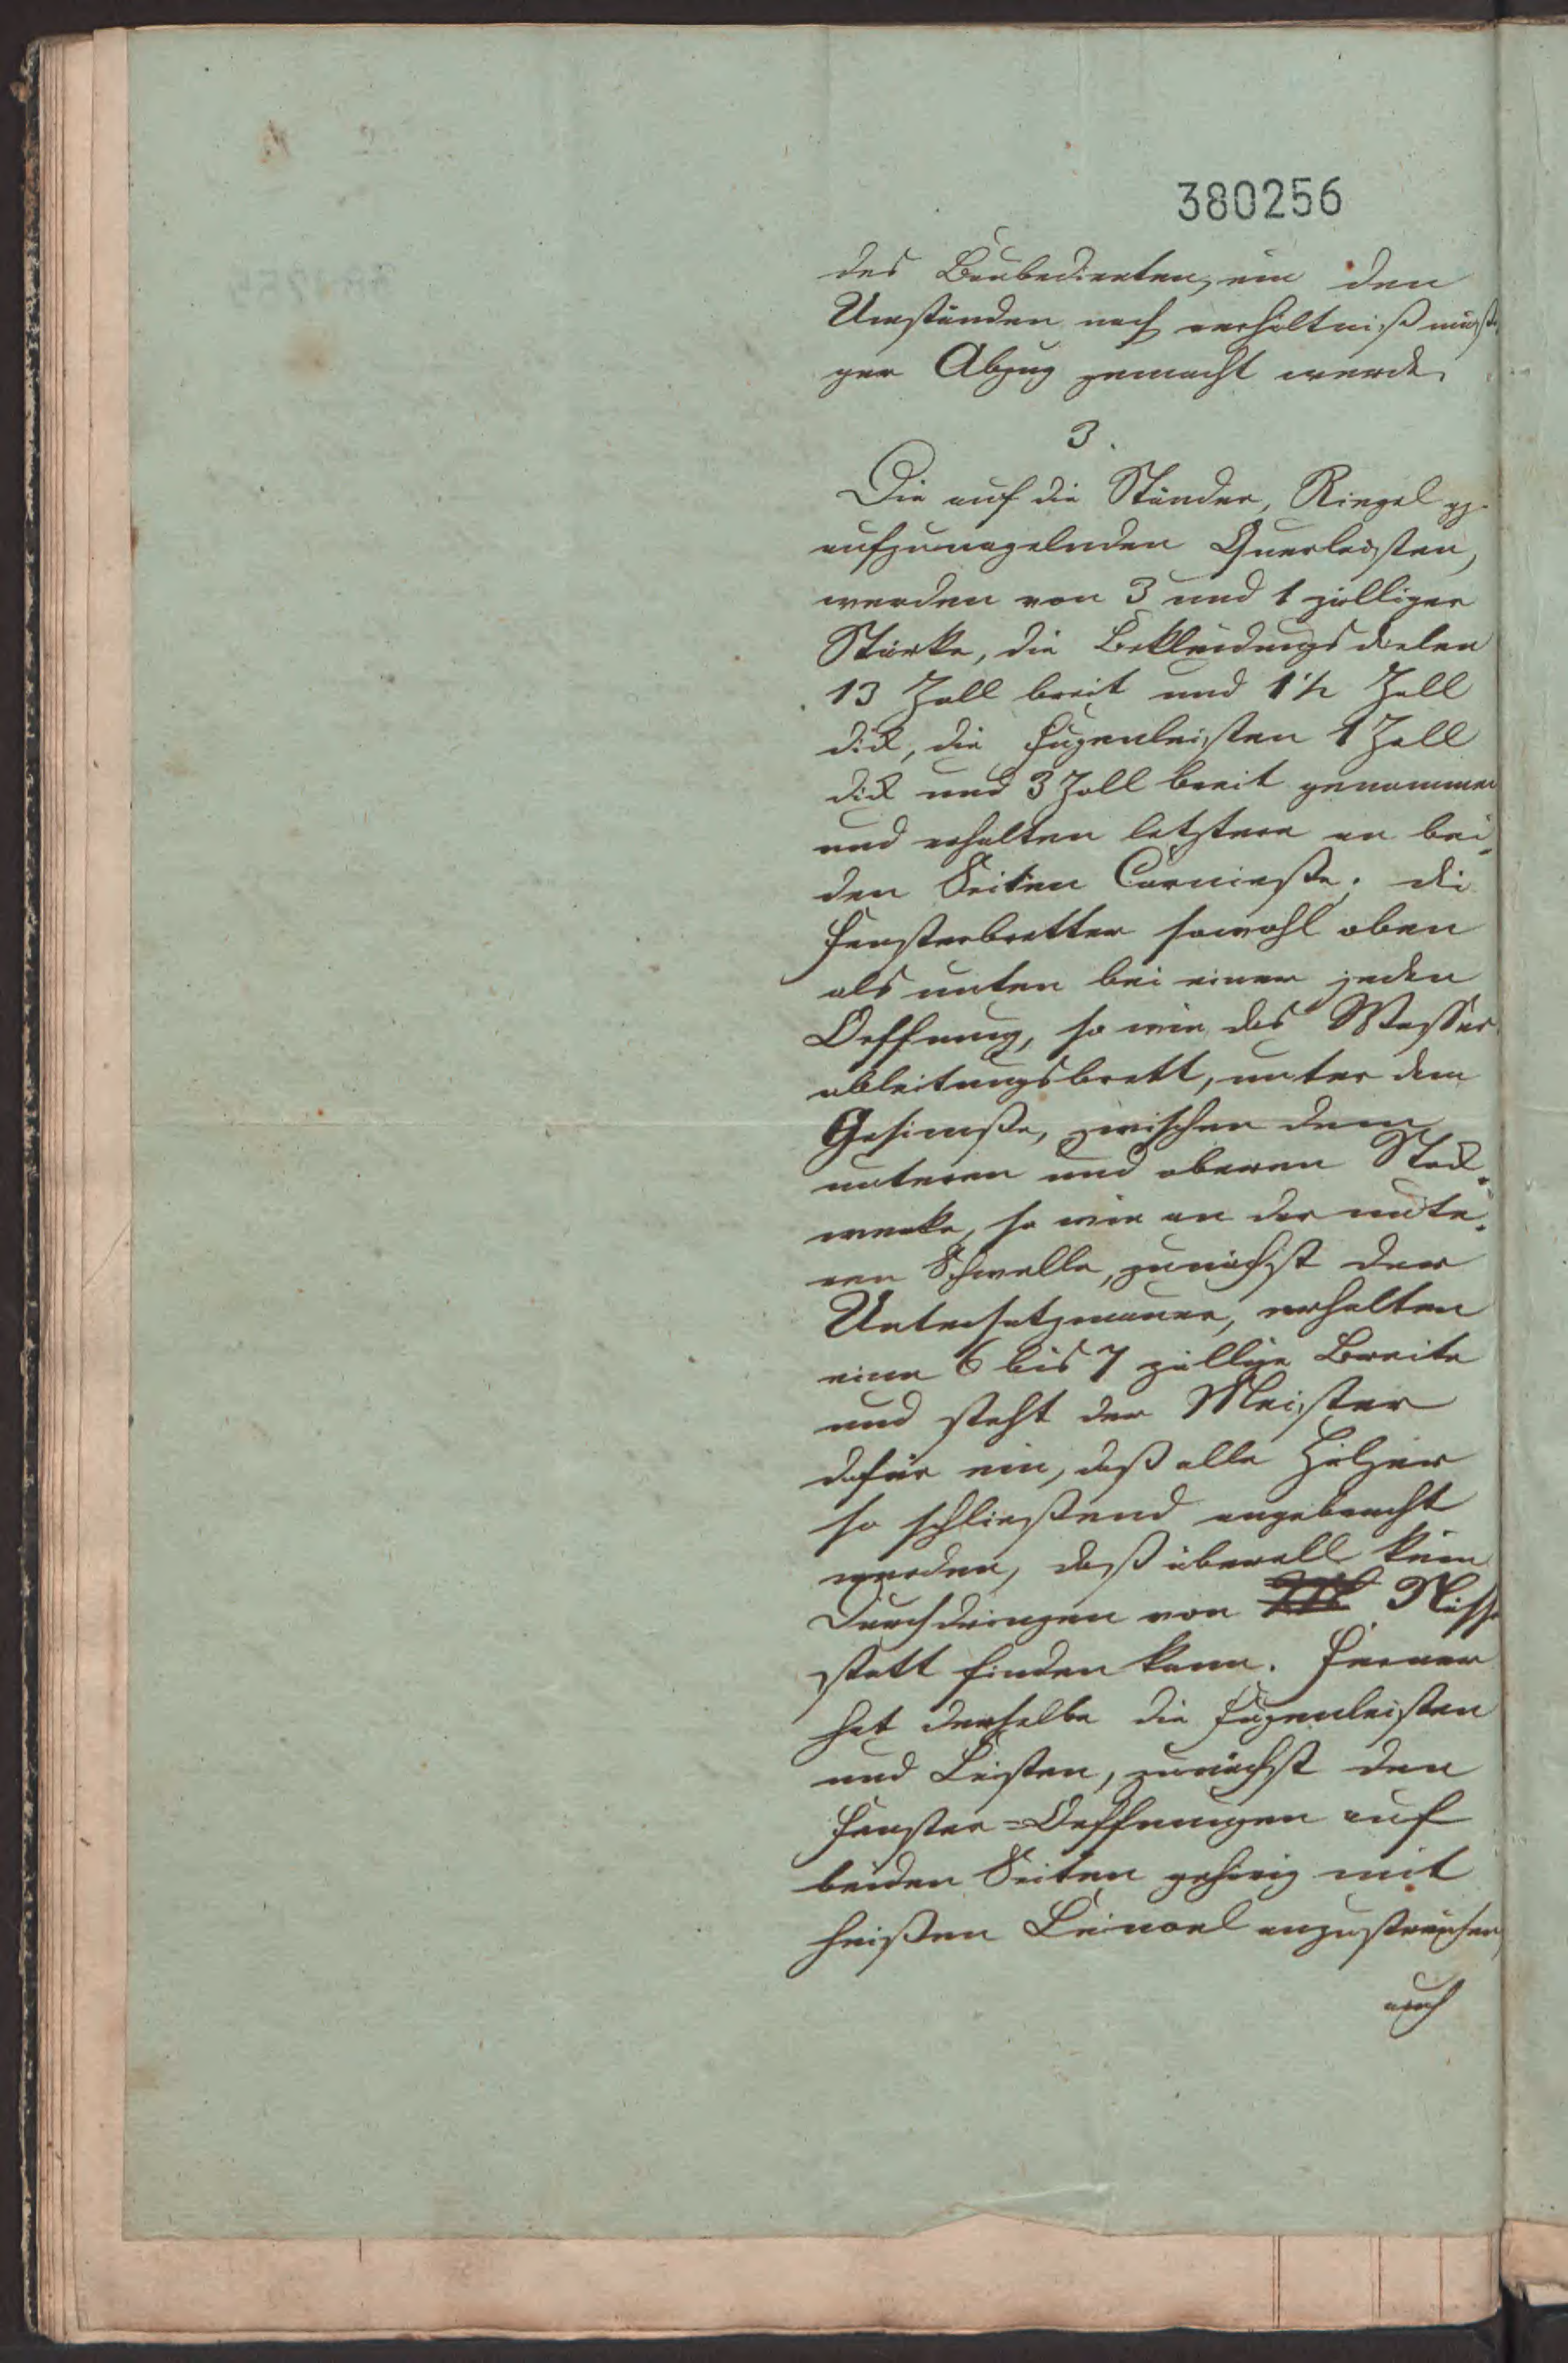 380256
des Baubedienten, ein den
Umständen nach verhältnißmäßi
ger Abzug gemacht werde.
3.
Die auf die Ständer, Riegel pp.
aufzunagelnden Querleisten,
werden von 3 und 1 zölliger
Stärke, die Bekleidungsdielen
13 Zoll breit und 1 1/2 Zoll
dick, die Fugenleisten 1 Zoll
dick und 3 Zoll breit genommen
und erhalten letztere an bei-
den Seiten Carnieße; die
Fensterbretter sowohl oben
als unten bei einer jeden
Oeffnung, so wie das Wasser
ableitungsbrett, unter dem
Gesimße, zwischen dem
unteren und oberen Stock-
werke, so wie an der unte-
ren Schwelle, zunächst der
Untersatzmauer, erhalten
eine 6 bis 7 zöllige Breite
und steht der Meister
dafür ein, daß alle Hölzer
so schließend angebracht
werden, daß überall kein
Durchdringen von Nässe
statt finden kann. Ferner
hat derselbe die Fugenleisten
und Leisten, zunächst den
Fenster-Oeffnungen auf
beiden Seiten gehörig mit
heißen Leinoel anzustreichen,
auch